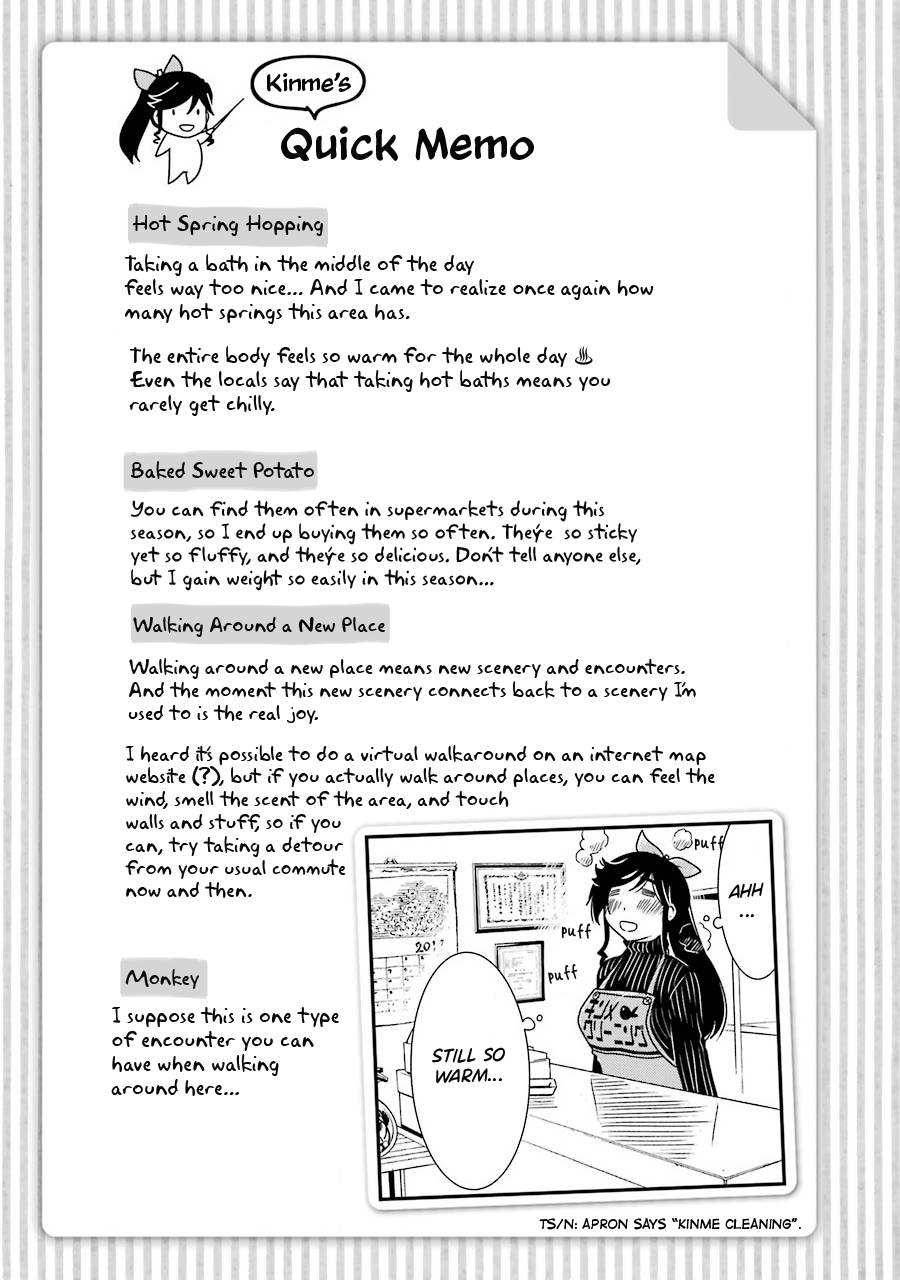 Kinme's
Quick Memo
Hot Spring Hopping
Taking a bath in the middle of the day
feels way too nice... And I came to realize once again how
many hot springs this area has.
The entire body feels so warm for the whole day ♨
Even the locals say that taking hot baths means you
rarely get chilly.
Baked Sweet Potato
You can find them often in supermarkets during this
season, so I end up buying them so often. They're so sticky
yet so fluffy, and they're so delicious. Don't tell anyone else,
but I gain weight so easily in this season...
Walking Around a New Place
Walking around a new place means new scenery and encounters.
And the moment this new scenery connects back to a scenery I'm
used to is the real joy.
I heard it's possible to do a virtual walkaround on an internet map
website (?), but if you actually walk around places, you can feel the
wind, smell the scent of the area, and touch
walls and stuff, so if you
can, try taking a detour
from your usual commute
now and then.
Monkey
I suppose this is one type
of encounter you can
have when walking
around here...
puff
AHH
...
puff
puff
2017
キンメ
クリーニング
STILL SO
WARM...
TS/N: APRON SAYS "KINME CLEANING".